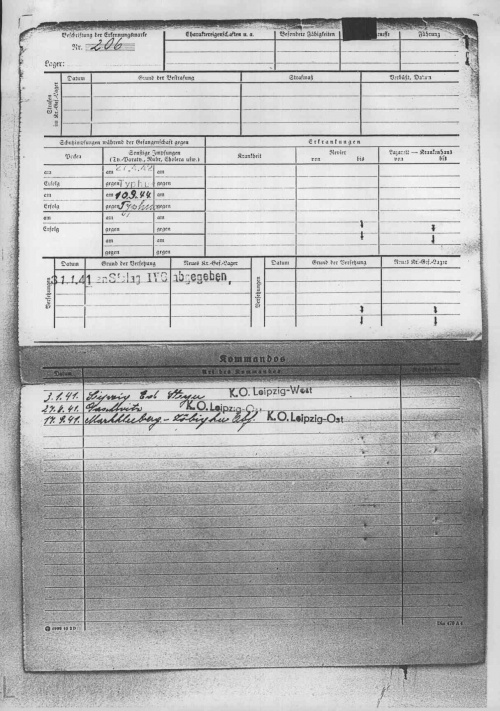 Beschriftung der Erkennungsmarke
Nr. 206
Lager:
Charaktereigenschaften u. a.
Besondere Fähigkeiten
Führung
Strafen im Kr.-Gef.-Lager
Datum
Grund der Bestrafung
Strafmaß
Verbüßt, Datum
Schutzimpfungen während der Gefangenschaft gegen
Erkrankungen
Pocken
Sonstige Impfungen
(Ty.-Paraty., Ruhr, Cholera usw.)
Krankheit
Revier
von bis
Lazarett — Krankenhaus
von bis
am am am
Erfolg gegen gegen
am am 10.9.44 am
Erfolg gegen gegen
am am am
Erfolg gegen gegen
am am
gegen gegen
Versetzungen
Datum
Grund der Versetzung
Neues Kr.-Gef.-Lager
Versetzungen
Datum
Grund der Versetzung
Neues Kr.-Gef.-Lager
31.1.41 an Stalag IVG abgegeben,
Kommandos
Datum
Art des Kommandos
3.1.41. Leipzig K.O. Leipzig-West
K.O. Leipzig-Ost
17.9.41. Markkleeberg K.O. Leipzig-Ost